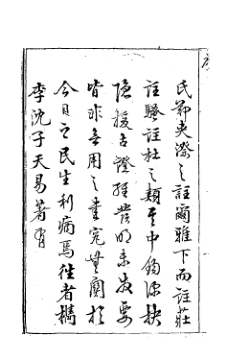 氏鄭夾漈之註爾雅下而註莊
註騷註杜之類其中鉤深抉
隱援古證經發明要
皆非無用之書究無關於
今日之民生利病焉往者檇
李沈子天易著有